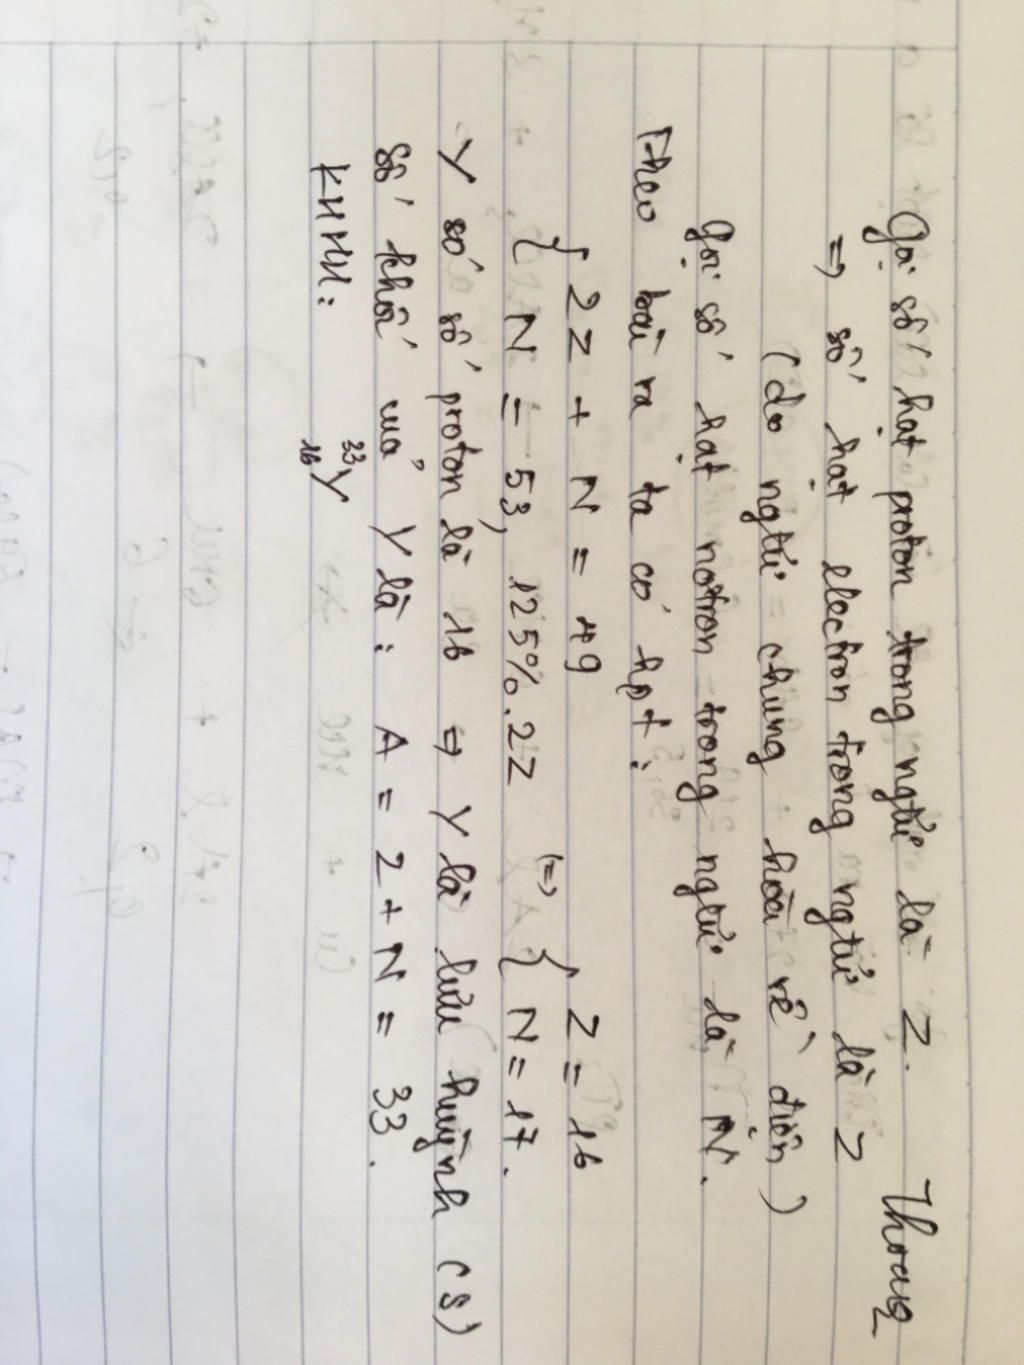 Gọi số hạt proton trong ngtử là Z. Thoang
⇒ số hạt electron trong ngtử là Z
(do ngtử chung hoà về điện)
Gọi số hạt nơtron trong ngtử là N.
Theo bài ra ta có hpt:
{ 2Z + N = 49
{ N = 53,125%.2Z (=) { Z = 16
{ N = 17.
Y số số proton là 16 ⇒ Y là lưu huỳnh (S)
Số khối của Y là: A = Z + N = 33.
KHHH: ³³₁₆Y